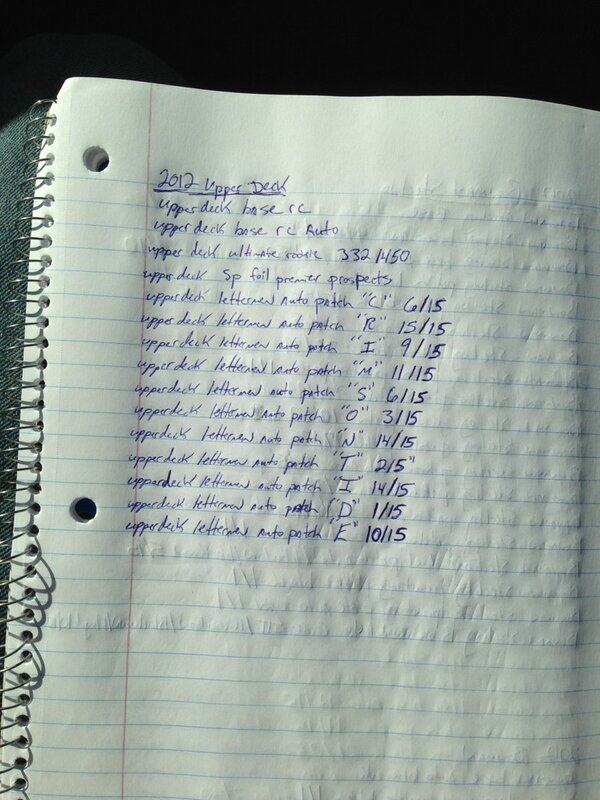 2012 Upper Deck
upper deck base rc
upper deck base rc Auto
upper deck ultimate rookie 332/450
upper deck Sp foil premier prospects
upperdeck lettermen Auto patch "C" 6/15
upper deck lettermen Auto patch "R" 15/15
upper deck lettermen Auto patch "I" 9/15
upperdeck lettermen Auto patch "M" 11/15
upperdeck lettermen Auto patch "S" 6/15
upperdeck lettermen Auto patch "O" 3/15
upperdeck lettermen Auto patch "N" 14/15
upperdeck lettermen Auto patch "T" 2/5"
upperdeck lettermen Auto patch "I" 14/15
upperdeck lettermen Auto patch "D" 1/15
upperdeck lettermen Auto patch "E" 10/15